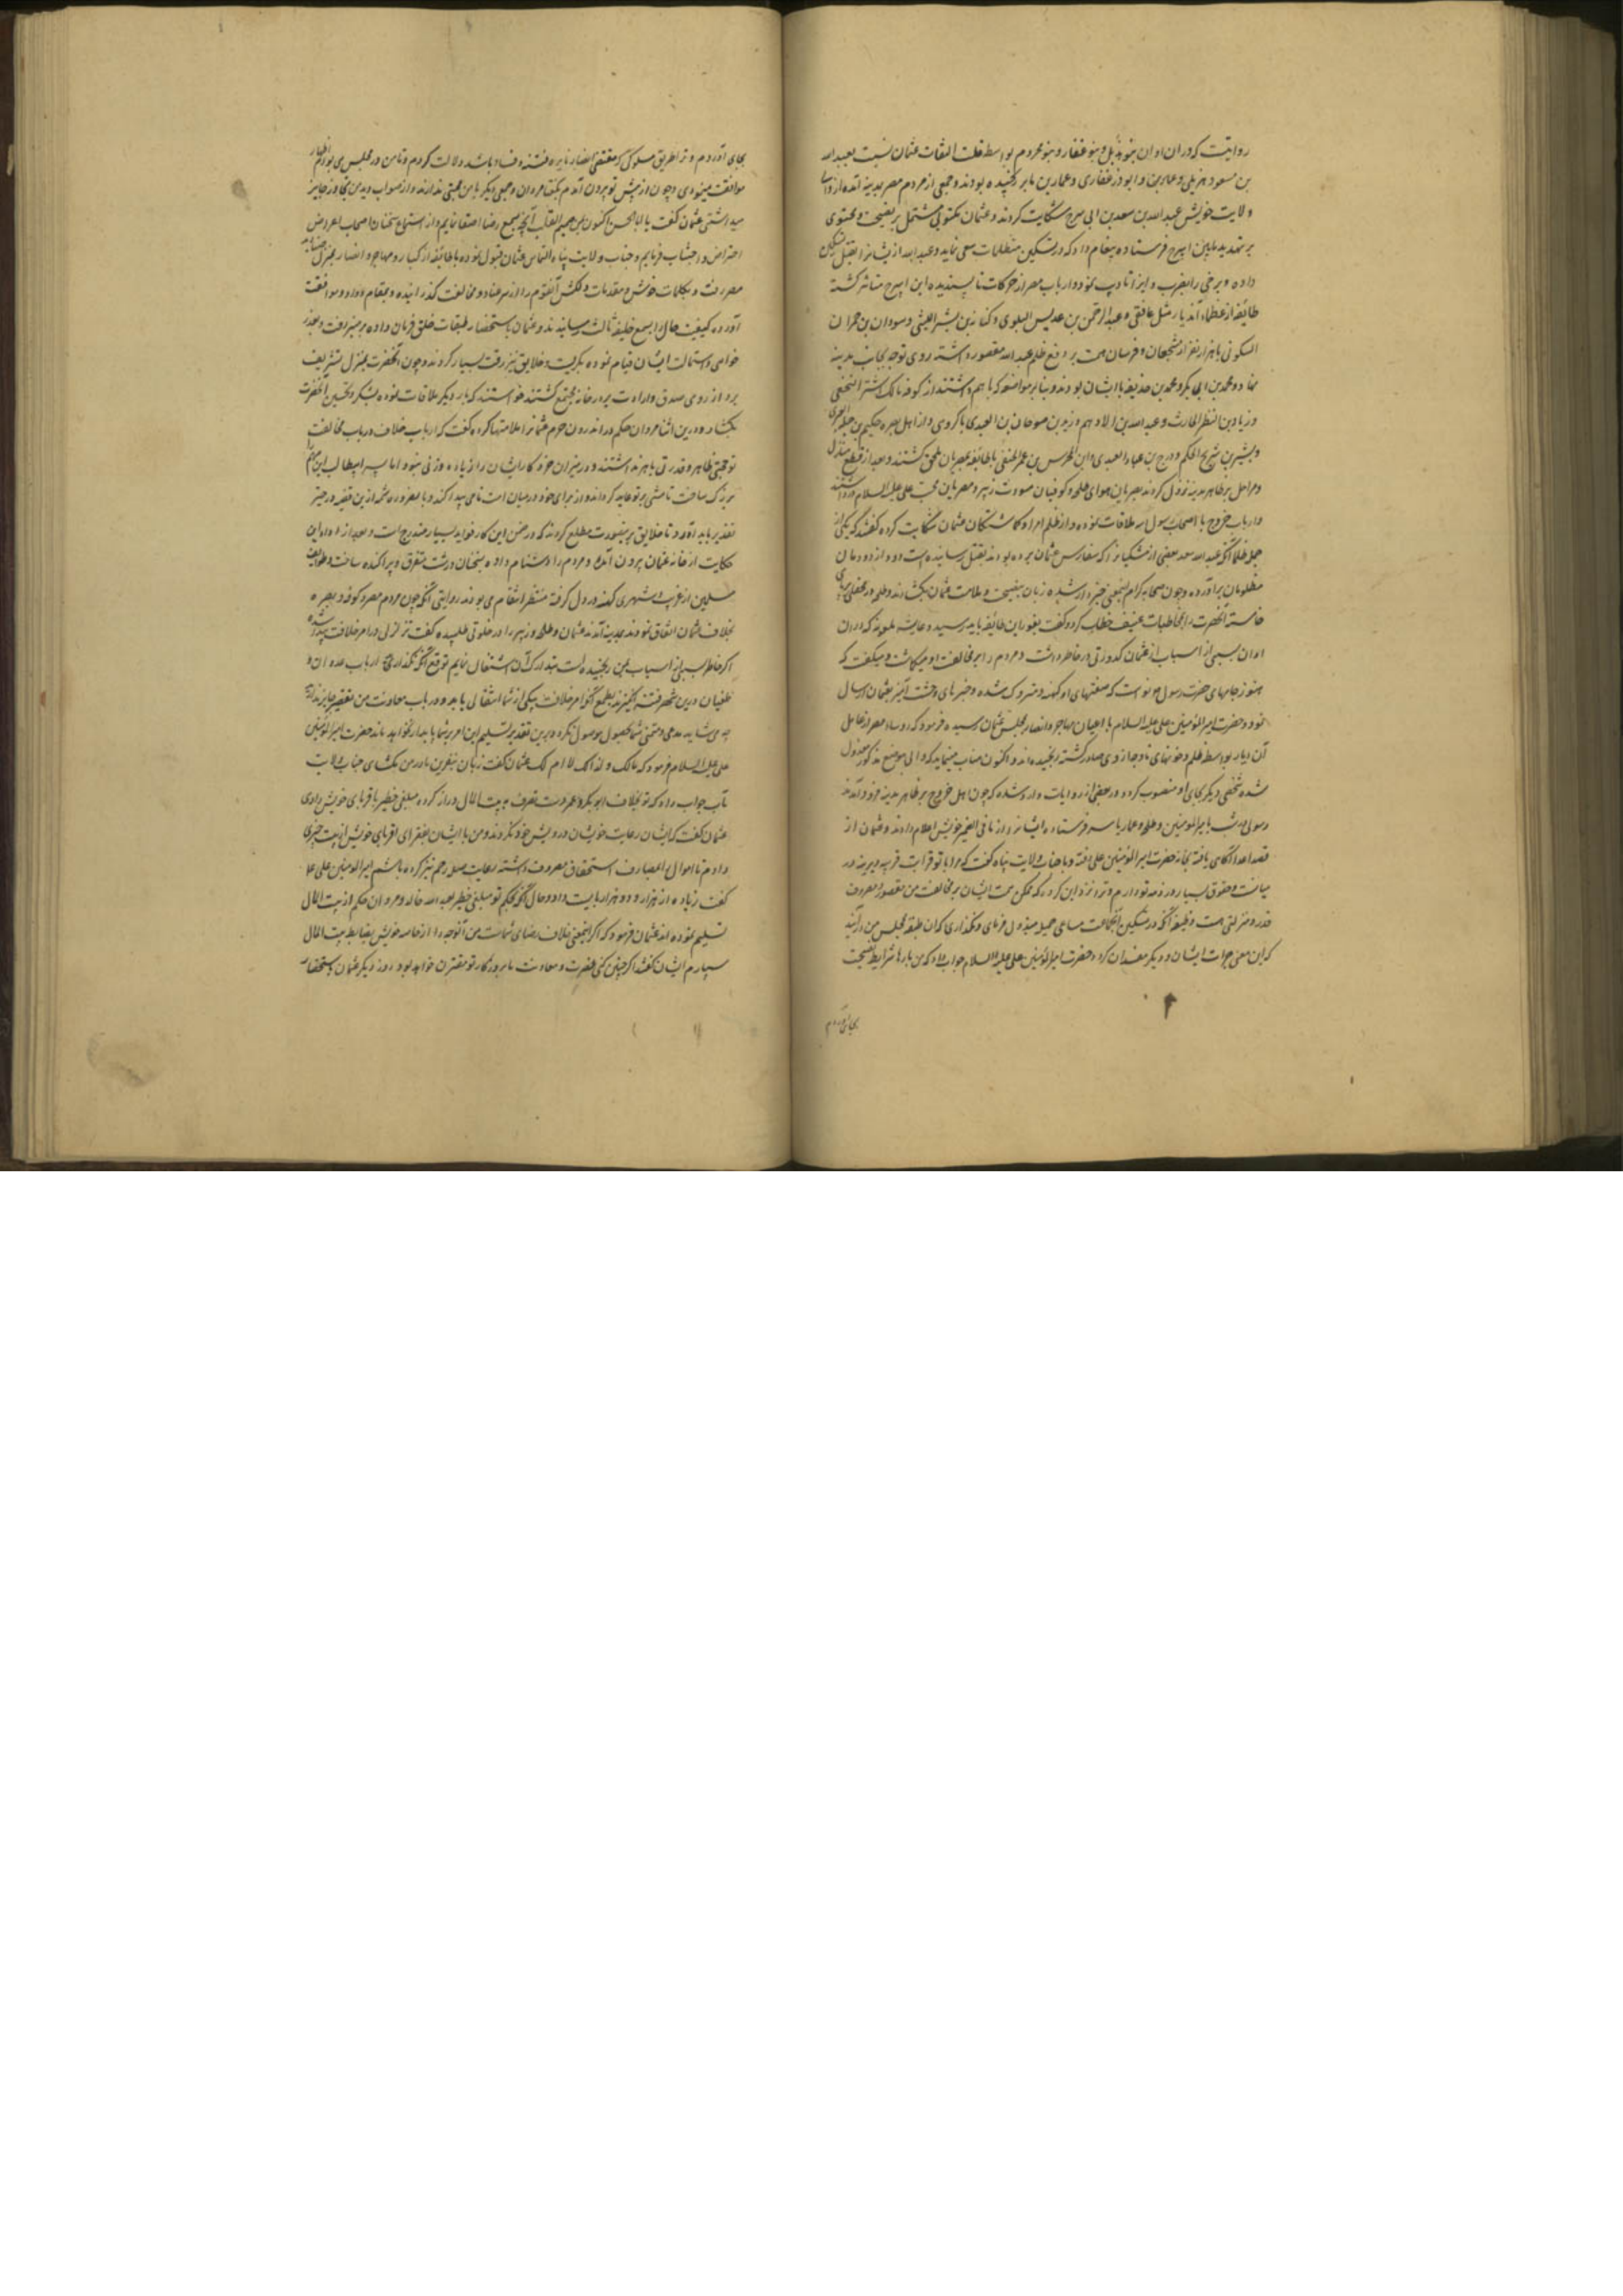 روایتست که در آن اوان بنو هذیل و بنو غفار و بنو مخزوم بواسطه قلت التفات عثمان نسبت بعبدالله
بن مسعود هزیلی و ابوذر غفاری و عمار بن یاسر رنجیده بودند و جمعی از مردم مصر بمدینه آمده از
ولایت خویش عبدالله بن سعد بن ابی سرح شکایت کردند و عثمان مکتوبی مشتمل بر نصیحت و محتوی
بر تهدید بابن ابی سرح فرستاده پیغام داد که در تسکین متظلمات سعی نماید و عبدالله از ایشانرا بقتل
داده و برخی را بضرب و ایذا تادیب نمود و ارباب مصر از حرکات ناپسندیده ابن ابی سرح متاثر کشته
طائفه از عظماء آندیار مثل غافقی و عبدالرحمن بن عدیس البلوی و کنانه بن بشر اللیثی و سودان بن حمران
السکونی با هزار نفر از شجعان و فرسان همت بر دفع ظلم عبدالله مقصور داشته روی توجه بجانب مدینه
نهادند و محمد بن ابی بکر و محمد بن حذیفه با ایشان بودند و بنابر مواضعه که با هم داشتند از کوفه مالک اشتر النخعی
و زیاد بن النضر الحارث و عبدالله بن الاصم و زید بن صوحان العبدی با کروهی و از اهل بصره حکیم بن جبله
و بشر بن شریح الحکم و ذریح بن عباد العبدی و ابن المحرس بن عمر الحنفی با طائفه بمصریان ملحق کشتند و بعد از قطع منازل
و مراحل بر ظاهر مدینه نزول کردند بصریان هوای طلحه و کوفیان مودت زبیر و مصریان محبت علی علیه السلام داشتند
و ارباب خروج با اصحاب رسول الله ملاقات نموده و از ظلم امرا و کماشتکان عثمان شکایت کرده کفتند که یکی از
جمله ظلمها آنکه عبدالله سعد بعضی از متشکیانرا که سفارش عثمان برده بودند بقتل رسانیده است و دود از دودمان
مظلومان برآورده و چون صحابه کرام ازینمعنی خبردار شدند زبان بنصیحت و ملامت عثمان بکشادند و طلحه در محفلی برپای
خاسته آنحضرت را بمخاطبات عنیف خطاب کرد و کفت بغور این طائفه باید رسید و عایشه ملعونه که در آن
اوان بسببی از اسباب از عثمان کدورتی در خاطر داشت و مردم را بر مخالفت او میکماشت و میکفت که
هنوز جامهای حضرت رسول نو است که سنتهای او کهنه و متروک شده و خبرهای وحشت آمیز بعثمان ارسال
نمود و حضرت امیرالمؤمنین علی علیه السلام با اعیان مهاجر و انصار بمجلس عثمان رسیده فرمود که روساء مصر از عامل
آن دیار بواسطه ظلم و خونهای ناوجه از وی صادر کشته رنجیده اند و اکنون مناسب مینماید که والی موضع مذکور معزول
شده شخصی دیگر بجای او منصوب کردد و در بعضی از روایات وارد شده که چون اهل خروج بر ظاهر مدینه فرود آمدند
رسولی نزد امیرالمومنین و طلحه و عمار یاسر فرستاده ایشانرا از مافی الضمیر خویش اعلام دادند و عثمان از
قصد اعدا آکاهی یافته بخانه حضرت امیرالمؤمنین علی رفته و با جناب ولایت پناه کفت که مرا با تو قرابت قریبه و دیرینه در
میانست و حقوق بسیار در ذمه تو دارم و ترا نزد این کروه که همکی همت ایشان بر مخالفت من مقصور و معروف
قدر و منزلتی هست وظیفه آنکه در تسکین آنجماعت مساعی جمیله مبذول فرمای و نکذاری که آن طبقه بمجلس من درآیند
که این معنی جرات ایشان و دیگر مفسدان کردد حضرت امیرالمؤمنین علی علیه السلام جواب داد که من بارها شرایط نصیحت
بجای آوردم
بجای آوردم و ترا بطریق مسلوک که مقتضی انتشار نایره فتنه و فساد باشد دلالت کردم و تا من در مجلس می بودم اظهار
موافقت مینمودی و چون از پیش تو بیرون آمدم بکفتار مروان و جمعی دیگر با من محبتی ندارند و از صواب دید من تجاوز جایز
میداشتی عثمان کفت یا ابا الحسن اکنون من صمیم القلب آنچه بسمع رضا اصغا نمایم و از استماع سخنان اصحاب اعراض
اعتراض و اجتناب فرمایم و جناب ولایت پناه التماس عثمان قبول نموده با طائفه از کبار و مهاجر و انصار بمنزل
مصر رفت و بکلمات خوش و مقدمات دلکش آنقوم را از سر عناد و مخالفت کذرانیده و بمقام وداد و موافقت
آورده کیفیت حال را بسمع خلیفه ثالث رسانیدند و عثمان باستحضار طبقات خلق فرمان داده بر منبر رفت و بعذر
خواهی و استمالت ایشان قیام نموده بکریست و خلایق نیز رقت بسیار کردند و چون آنحضرت بمنزل تشریف
برد از روی صدق و ارادت بر در خانه مجتمع کشتند خواستند که بار دیگر ملاقات نموده بشکر و تحسین آنحضرت
بکشاد و درین اثنا مروان حکم در اندرون حرم عثمانرا ملامتها کرده کفت که ارباب خلاف در باب مخالفت
تو حجتی ظاهر و قدرتی باهر نداشتند و در میزان خرد کار ایشان را زیاده وزنی نبود اما پسر ابیطالب این مهم
بزرک ساخت تا منتی بر تو عاید کرداند و از برای خود در میان امت نامی پیدا کند
تقدیر باید آورد تا خلایق برینصورت مطلع کردند که در ضمن این کار فواید بسیار مندرج است و بعد از اداء این
حکایت از خانه عثمان بیرون آمد و مردم را دشنام داده بسخنان درشت متفرق و پراکنده ساخت و طوایف
مسلمین از غریب و شهری کینه در دل کرفته منتظر انتقام می بودند روایتی آنکه چون مردم مصر و کوفه و بصره
بخلاف عثمان اتفاق نمودند بمدینه آمدند عثمان و طلحه و زبیر را در خلوتی طلبیده کفت تزلزلی در امر خلافت پیدا شده
اکر خاطر بسببی از اسباب من رنجیده است بتدارک آن اشتغال نمایم توقع آنکه نکذارید ارباب عدوان و
طغیان درین شهر فتنه انکیزند بطمع آنکه امر خلافت بیکی از شما انتقال یابد و در باب معاونت من تقصیر جایز ندارید
چه می شاید مدعی و متمنی شما بحصول موصول نکردد و برین تقدیر تسلیم این امر بر شما پایدار نخواهد ماند حضرت امیرالمؤمنین
علی علیه السلام فرمود که مالک و لذالک لا ام لک عثمان کفت زبان بنفرین مادر من مکشای جناب ولایت
مآب جواب داد که تو بخلاف ابوبکر و عمر دست تصرف به بیت المال دراز کرده مبلغی خطیر باقربای خویش دادی
عثمان کفت که ایشان رعایت خویشان درویش خود نکردند و من با ایشان بفقرای اقربای خویش از بیت چیزی
دادم تا اموال بمصارف استحقاق مصروف داشته رعایت صله رحم نیز کرده باشم امیرالمومنین علی علیه
کفت زیاده از هزار و دو هزار بایست داد و حال آنکه بحکم تو مبلغی خطیر بعبدالله خالد و مروان حکم از بیت المال
تسلیم نموده اند عثمان فرمود که اکر اینمعنی خلاف رضای شماست من آنوجه را از خاصه خویش بضابط بیت المال
سپارم ایشان کفتند اکر چنین کنی نصرت و معاونت ما بروزکار تو مقترن خواهد بود روز دیکر عثمان باستحضار